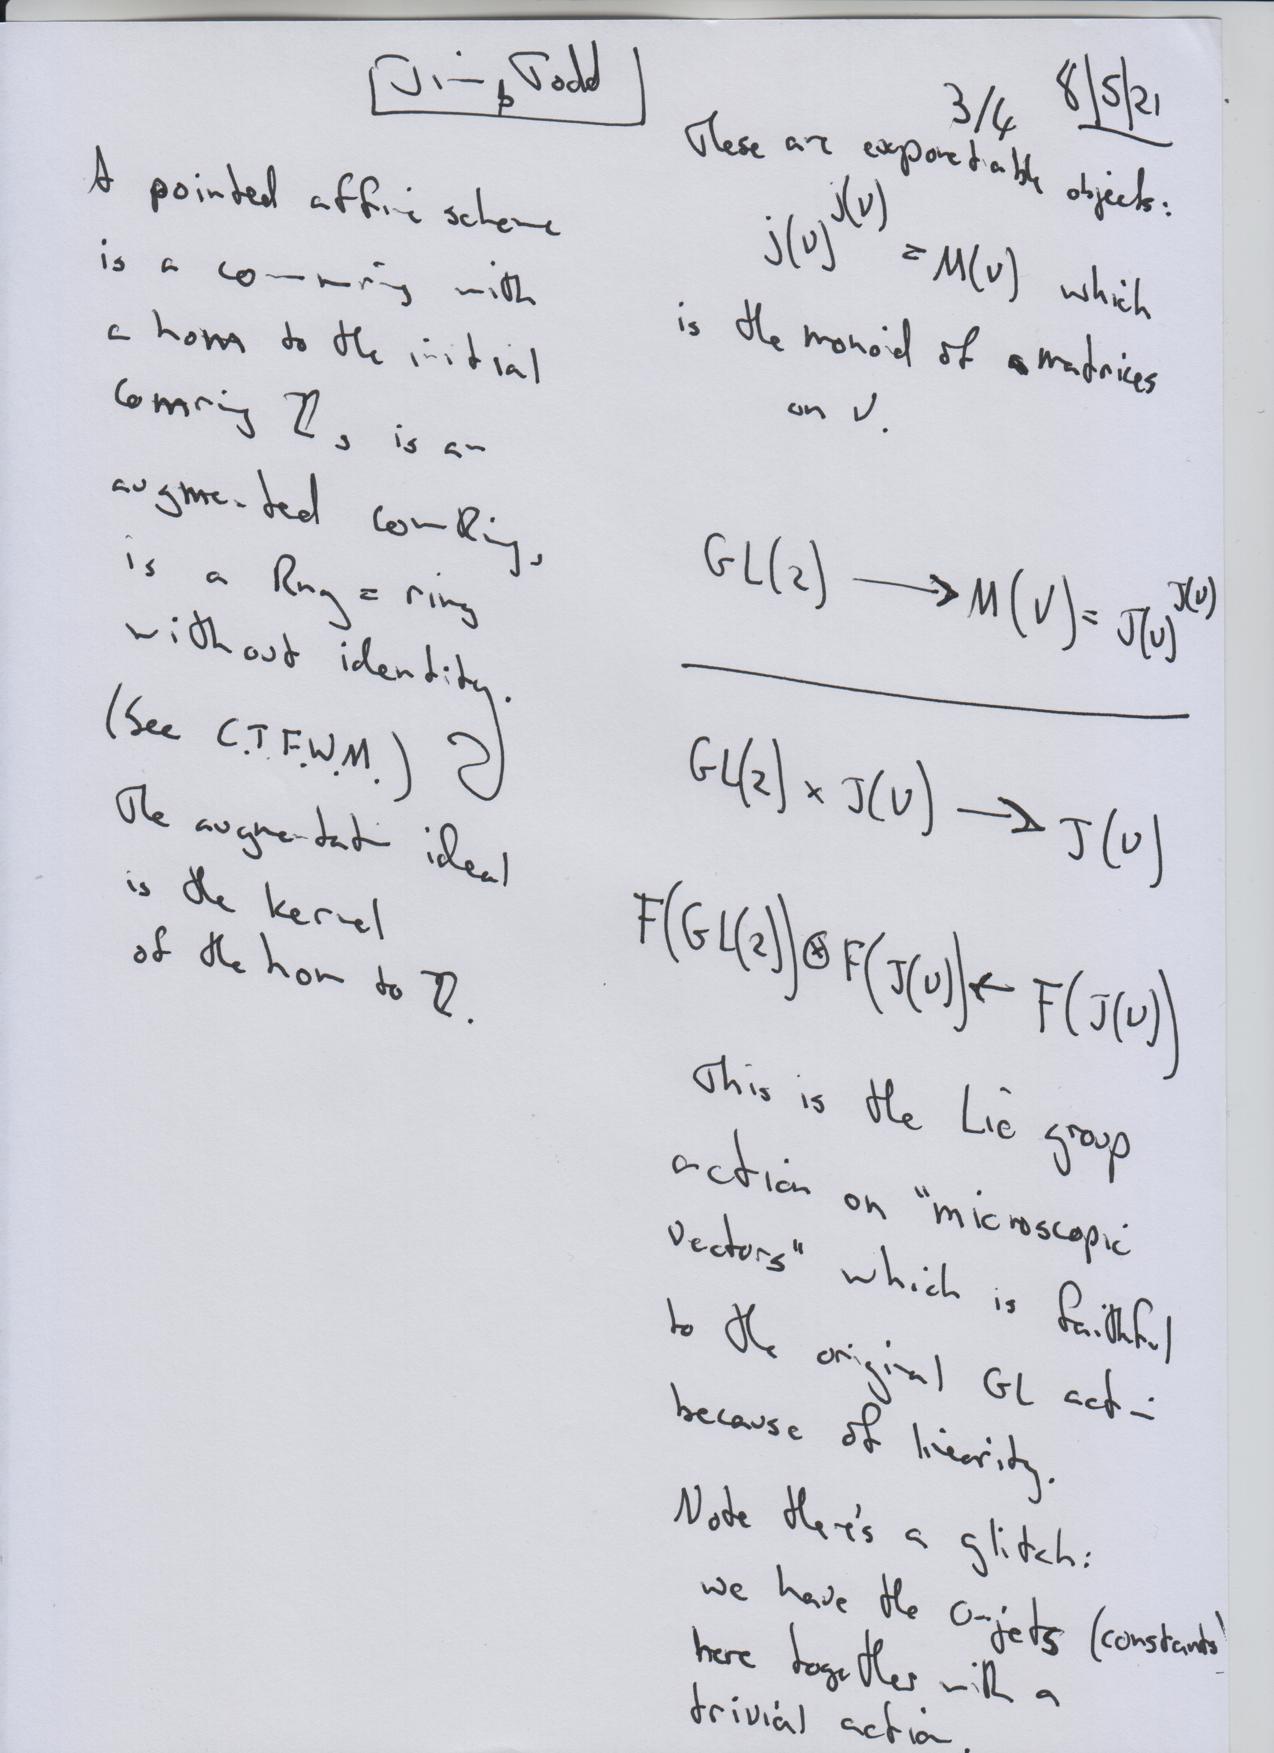 Jim, Todd
3/4 8/5/21
A pointed affine scheme
is a comring with
a hom to the initial
Comring ℤ, is an
augmented comRing,
is a Rng = ring
without identity.
(See C.T.F.W.M.)
The augmentation ideal
is the kernel
of the hom to ℤ.
These are exponentiable objects:
j(V)^{j(V)} = M(V) which
is the monoid of matrices
on V.
GL(2) ⟶ M(V) = J(V)^{J(V)}
GL(2) × J(V) ⟶ J(V)
F(GL(2)) ⊗ F(J(V)) ← F(J(V))
This is the Lie group
action on "microscopic
vectors" which is faithful
to the original GL action
because of linearity.
Note there's a glitch:
we have the 0-jets (constants)
here together with a
trivial action.